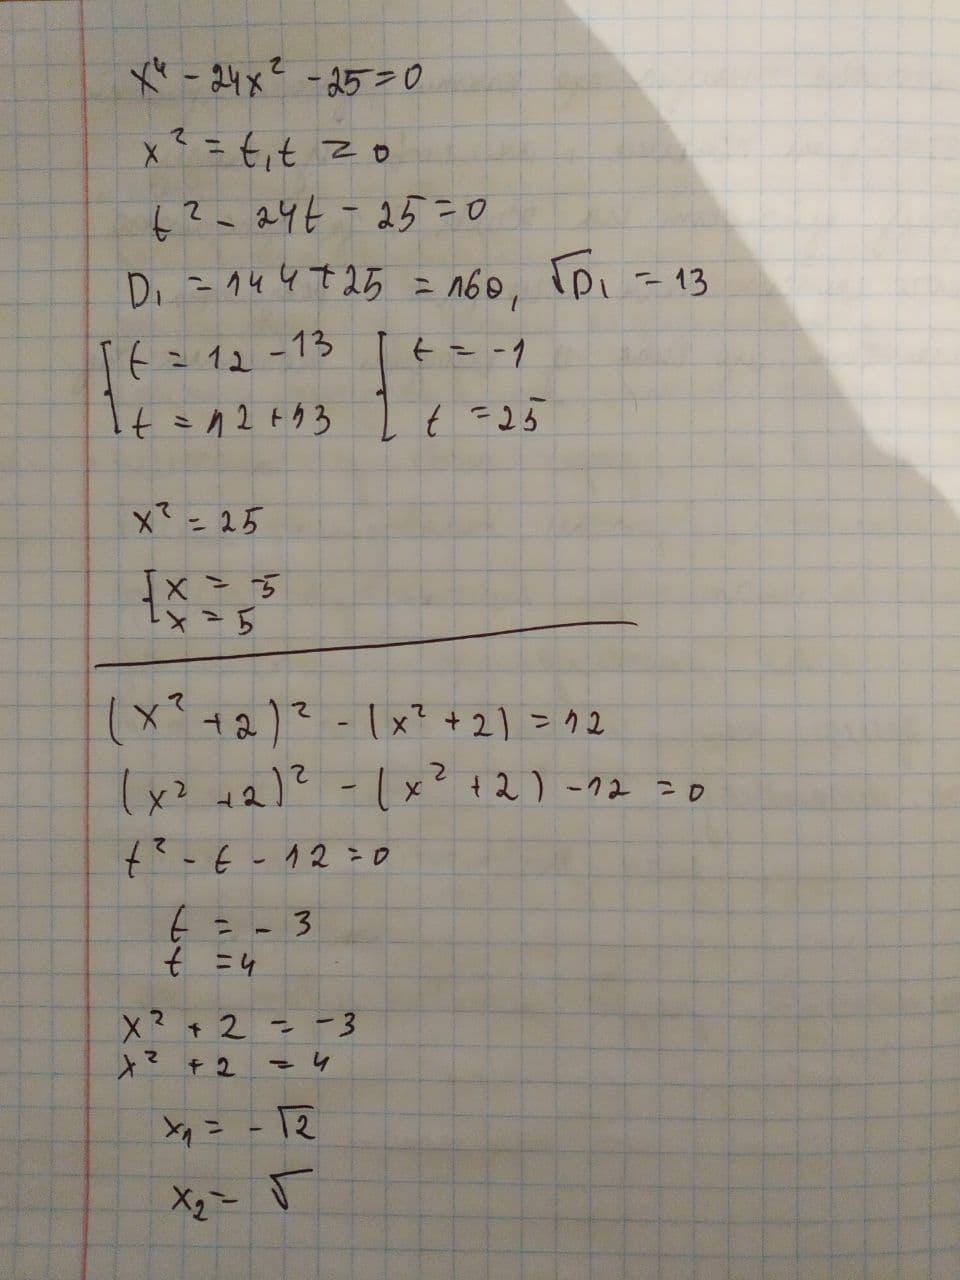 x⁴ - 24x² - 25 = 0
x² = t, t ≥ 0
t² - 24t - 25 = 0
D₁ = 144 + 25 = 160, √D₁ = 13
[ t = 12 - 13 [ t = -1
t = 12 + 13 t = 25
x² = 25
[ x = -5
x = 5
(x² + 2)² - (x² + 2) = 12
(x² + 2)² - (x² + 2) - 12 = 0
t² - t - 12 = 0
t = - 3
t = 4
x² + 2 = -3
x² + 2 = 4
x₁ = - √2
x₂ = √